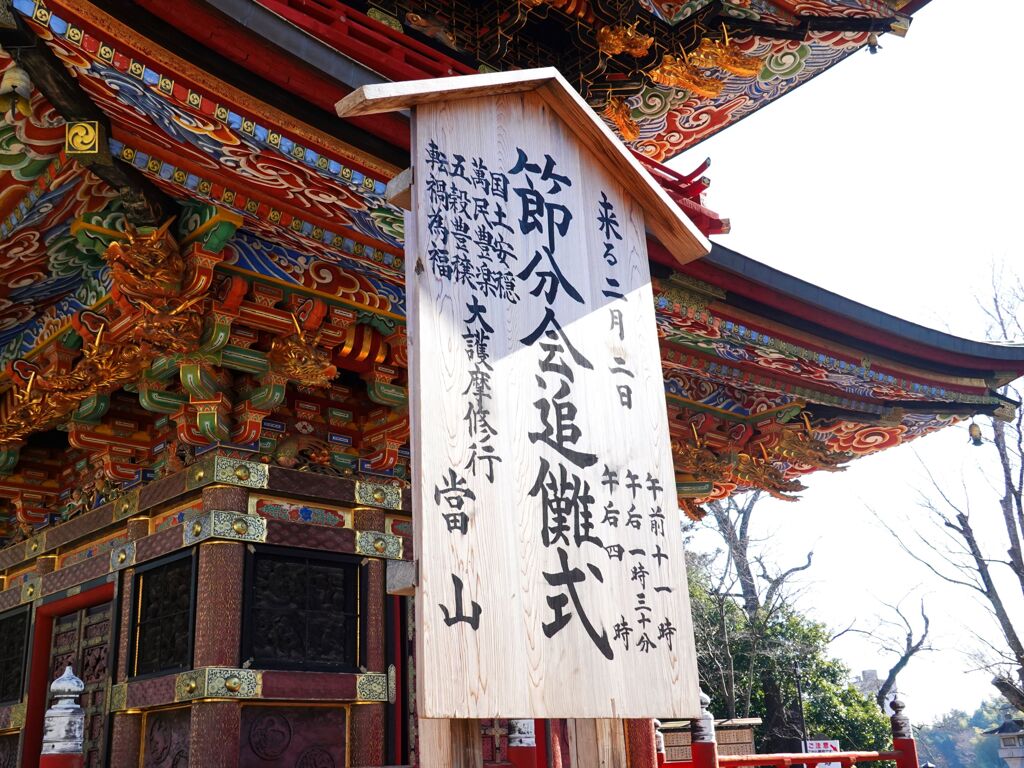 来る二月三日
午前十一時
午后一時三十分
午后四時
節分会追儺式
国土安穏
萬民豊楽
五穀豊穣
転禍為福
大護摩修行
當山
ご注意